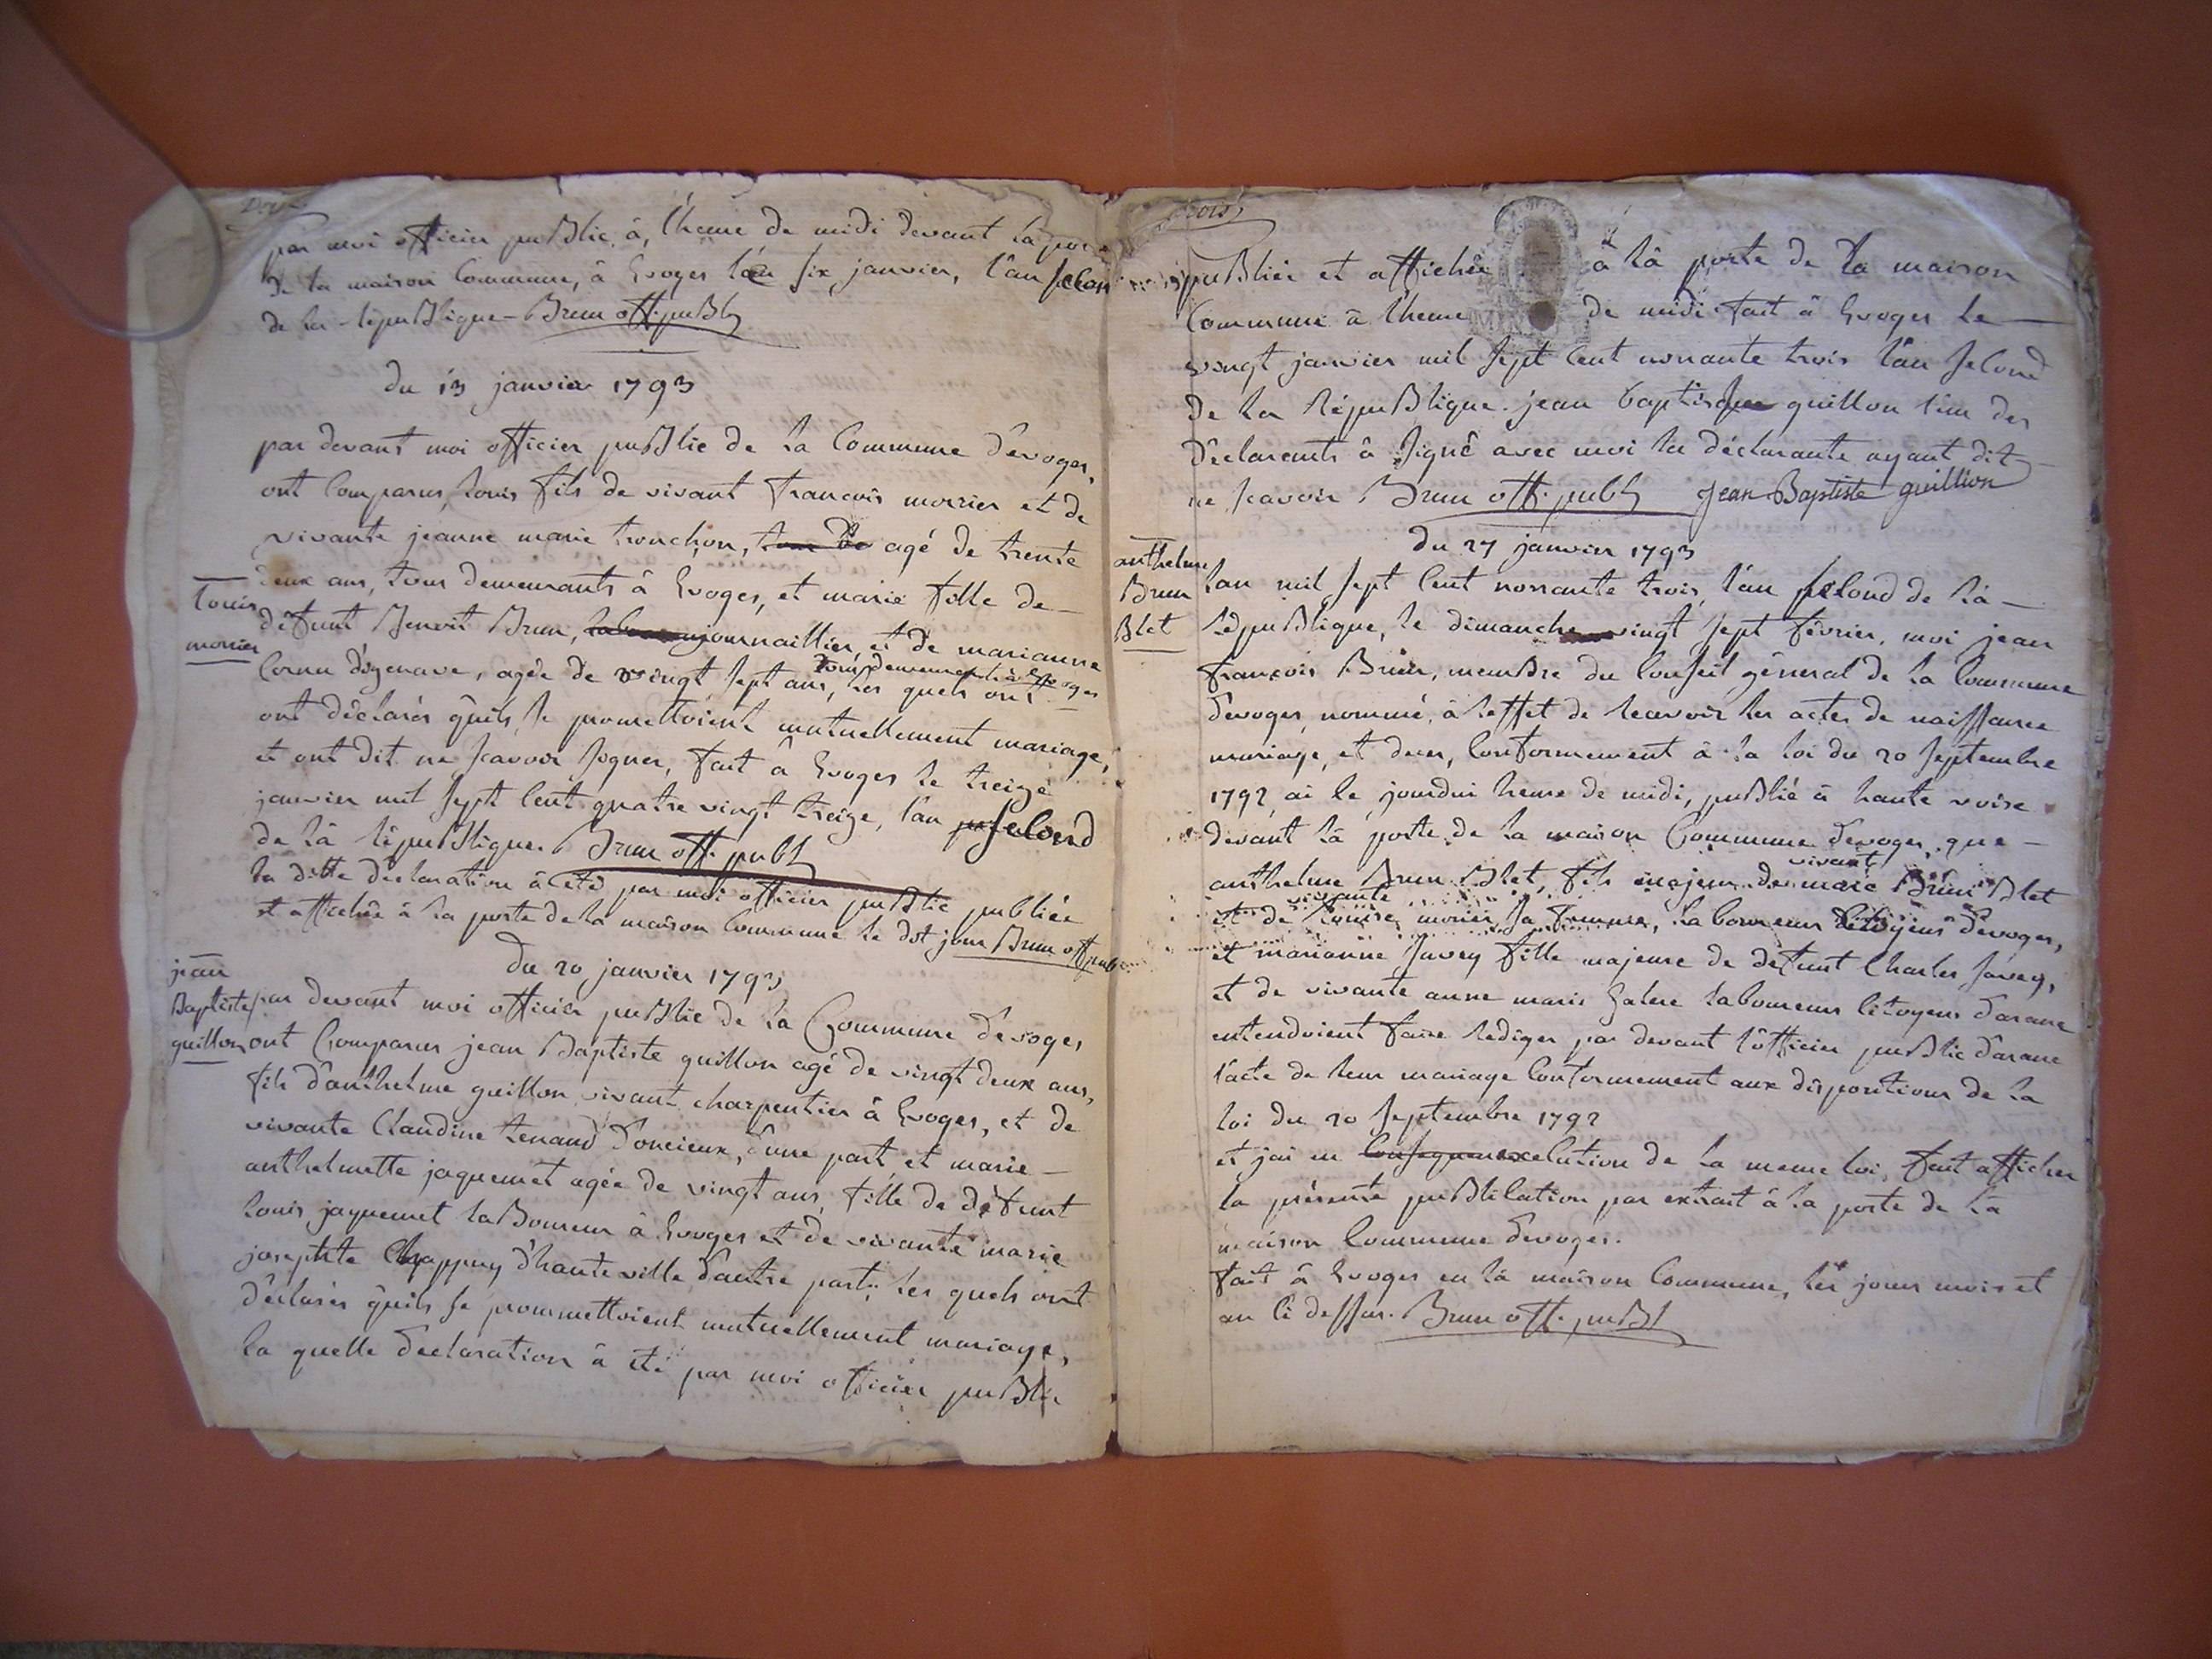 par moi officier publie, â, l'heure de midi devant la porte
de la maison commune, â Evoges le six janvier, l'an second
de la république Brun off. publ
du 13 janvier 1793
par devant moi officier public de la commune d'evoges,
ont comparus, louis fils de vivant francois morrier et de
vivante jeanne marie tronchon, agé de trente
louis
deux ans, tous demeurants â Evoges, et marie fille de
morrier
défunt Benoit Brun, journaillier, et de marianne
tous demeurants â Evoges
Cornu d'izenave, agée de vingt sept ans, les quels ont
ont déclarés qu'ils se promettoient mutuellement mariage,
et ont dit ne scavoir signer, fait â Evoges le treize
janvier mil sept cent quatre vingt treize, l'an second
de lâ république. Brun off. publ
la ditte déclaration â été par moi officier public publiée
et affichée â la porte de la maison commune le dit jour Brun off publ
du 20 janvier 1793
jean
Baptiste
guillon
par devant moi officier public de la Commune d'evoges
ont Comparus jean Baptiste guillon agé de vingt deux ans,
fils d'anthelme guillon vivant charpentier â Evoges, et de
vivante Claudine tenand d'oncieux, d'une part et marie
anthelmette jaquemet agée de vingt ans, fille de défunt
louis jaquemet laboureur â Evoges et de vivante marie
josephte Chappuy d'hauteville d'autre part, les quels ont
déclarés qu'ils se prommettoient mutuellement mariage,
la quelle declaration â été par moi officier publi
trois
publiée et affichée â lâ porte de la maison
Commune â l'heure de midi fait â Evoges le
vingt janvier mil sept cent nonante trois l'an second
de la République. jean baptiste guillon l'un des
déclarants â signé avec moi la déclarante ayant dit
ne scavoir Brun off. publ Jean Baptiste guillion
du 27 janvier 1793
anthelme
Brun
Blet
lan mil sept cent nonante trois, l'an second de lâ
république, le dimanche vingt sept février, moi jean
françois Brun, membre du conseil général de la commune
d'evoges nommé, â leffet de recevoir les actes de naissance
mariage, et deces, conformement â la loi du 20 septembre
1792 ai le jourdui heure de midi, publié â haute voise
devant lâ porte de la maison Commune d'evoges, que
vivant
anthelme Brun Blet, fils majeur de marc Brun Blet
vivante
et de louise morier sa femme, laboureur citoyens d'evoges,
et marianne savey fille majeure de défunt Charles savey,
et de vivante anne marie galere laboureurs citoyens d'arane
entendoient faire rédiger par devant l'officier public d'arane
l'acte de leur mariage conformement aux dispositions de la
loi du 20 septembre 1792
et jai en execution de la meme loi, fait afficher
la présente publication par extrait â la porte de lâ
maison commune d'evoges.
fait â Evoges en lâ maison commune, les jours mois et
an ci dessus. Brun off. publ